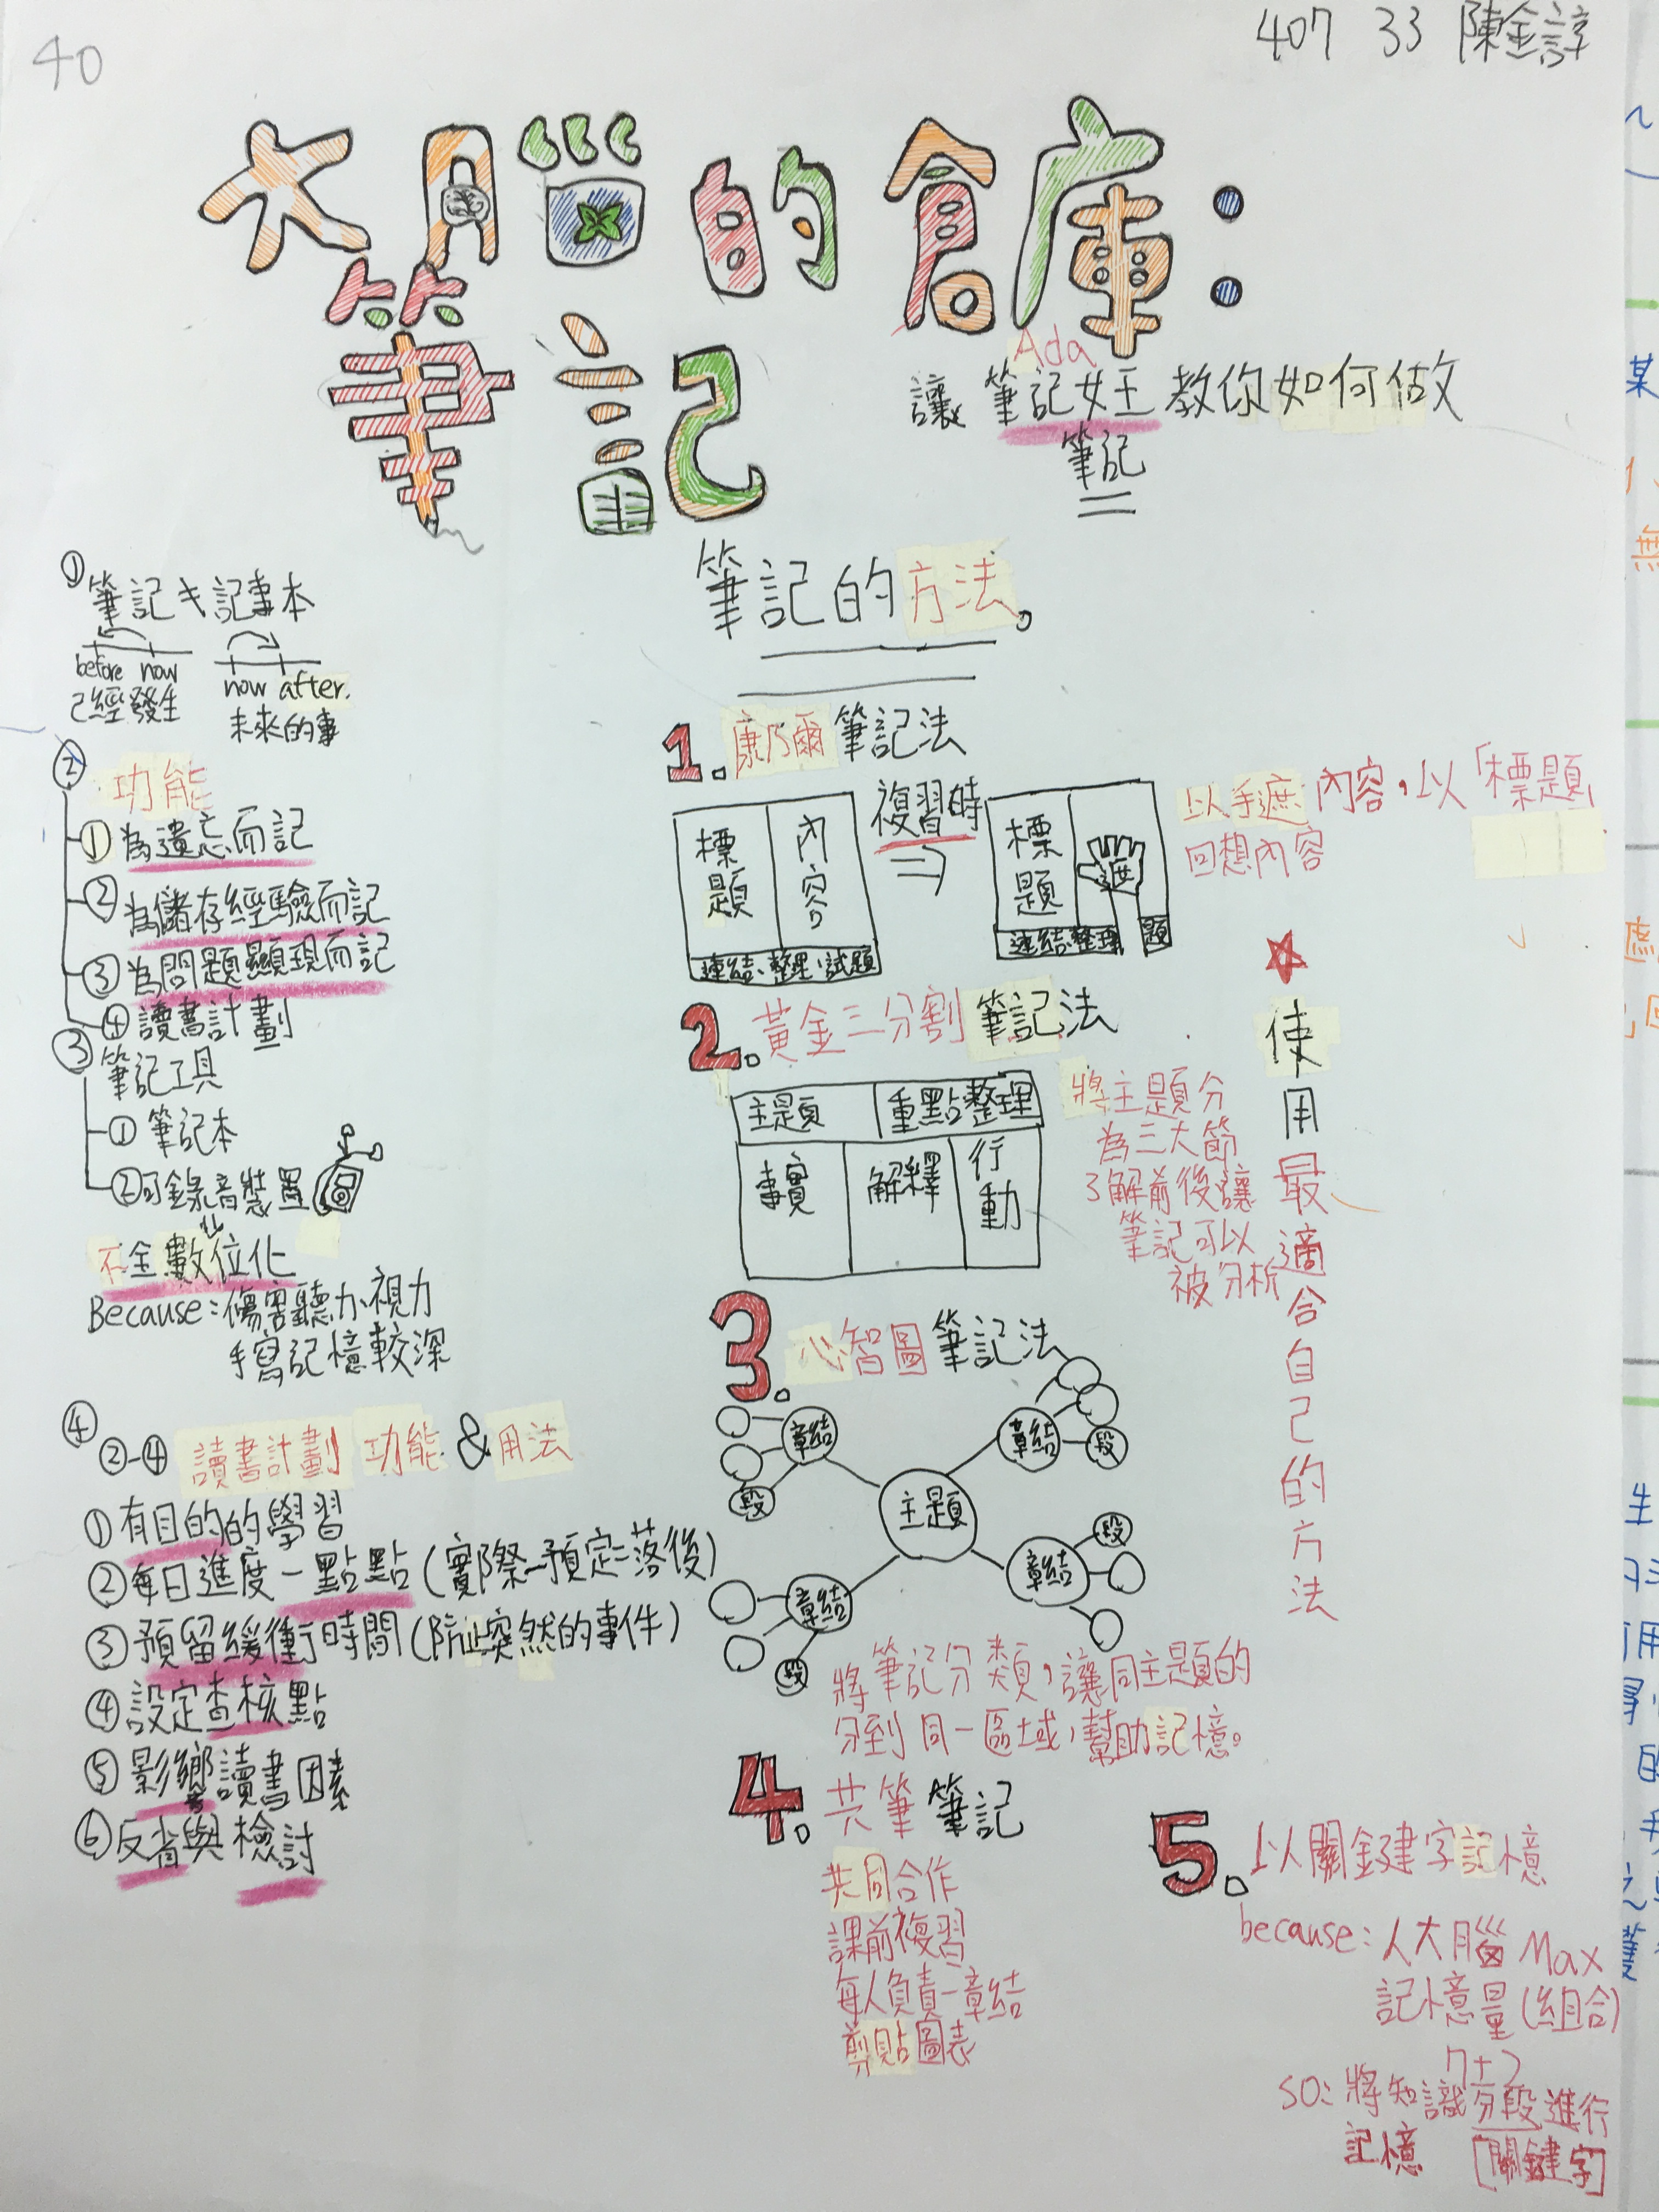 40
407 33 陳金諄
大腦的倉庫：
筆記
Ada
讓筆記女王教你如何做
筆記
① 筆記≠記事本
before now
now after.
已經發生
未來的事
② 功能
①為遺忘而記
②為儲存經驗而記
③為問題顯現而記
④讀書計劃
③ 筆記工具
①筆記本
②可錄音裝置
不全數位化
Because：傷害聽力、視力
手寫記憶較深
④ ②-④ 讀書計劃功能&用法
①有目的的學習
②每日進度一點點(實際-預定=落後)
③預留緩衝時間(防止突然的事件)
④設定查核點
⑤影響讀書因素
⑥反省與檢討
筆記的方法。
1. 康乃爾筆記法
標題
內容
連結、整理、試題
複習時
⇒
標題
遮
連結、整理
題
以手遮內容，以「標題
回想內容
2. 黃金三分割筆記法
主題
重點整理
事實
解釋
行動
將主題分
為三大節
了解前後讓
筆記可以
被分析
3. 心智圖筆記法
主題
章結
段
章結
段
章結
段
章結
段
將筆記分類，讓同主題的
分到同一區域，幫助記憶。
4. 共筆筆記
共同合作
課前複習
每人負責一章結
剪貼圖表
★使用最適合自己的方法
5. 以關鍵字記憶
because：人大腦Max
記憶量(組合)
7±2
so：將知識分段進行
記憶 [關鍵字]